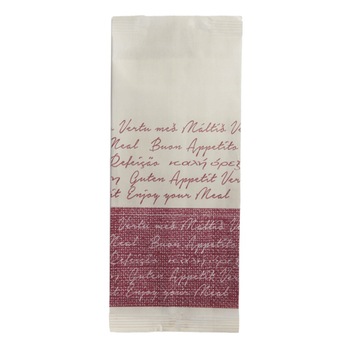 Vertu með Máltíð V
Meal Buon Appetito
Refeição καλή όρεξ
Guten Appetit Ver
it Enjoy your Meal
Vertu með Máltíð V
Meal Buon Appetito
Refeição καλή όρεξ
Guten Appetit Ver
it Enjoy your Meal